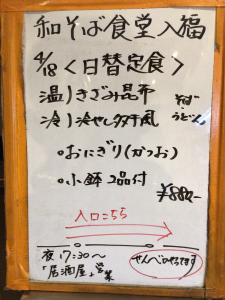 和そば食堂 入福
4/18 <日替定食>
温)きざみ昆布
冷)冷やし
そば・うどん
・おにぎり(かつお)
・小鉢 2品付
¥880-
入口こちら
夜17:30～
「居酒屋」営業
せんべろやってます